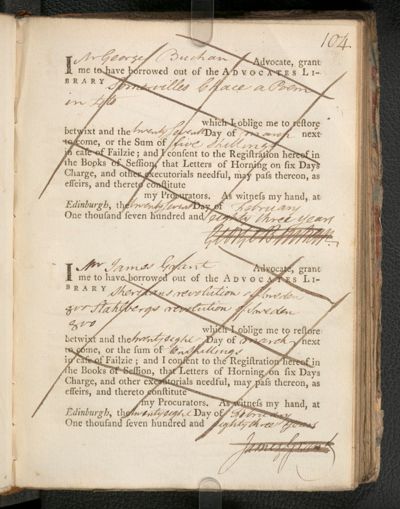 104
I Mr George Buchan Advocate, grant
me to have borrowed out of the ADVOCATES LI-
BRARY Somervilles Chace a Poem
in 4to
which I oblige me to restore
betwixt and the twenty seven Day of march next
to come, or the Sum of five shillings
in case of Failzie; and I consent to the Registration hereof in
the Books of Session, that Letters of Horning on six Days
Charge, and other executorials needful, may pass thereon, as
effeirs, and thereto constitute
my Procurators. As witness my hand, at
Edinburgh, the twenty seven Day of February
One thousand seven hundred and eighty three years
George Buchan
I Mr James Grant Advocate, grant
me to have borrowed out of the ADVOCATES LI-
BRARY Sheridans revolution of Sweden
8vo Stahlbergs revolution of Sweden
8vo
which I oblige me to restore
betwixt and the twenty eight Day of march next
to come, or the sum of shillings
in case of Failzie; and I consent to the Registration hereof in
the Books of Session, that Letters of Horning on six Days
Charge, and other executorials needful, may pass thereon, as
effeirs, and thereto constitute
my Procurators. As witness my hand, at
Edinburgh, the twenty eight Day of February
One thousand seven hundred and eighty three years
James Grant